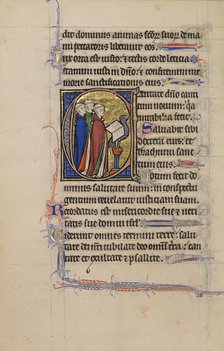 dit dominus animas scőr suor de ma
nu peccatoris liberauit eos.
lux orta est iusto: et rectis corde leticia
etamini iusti in dno: et confitemini me
morie sanctificationis eius.
antate dno can
ticum nouum: quia
mirabilia fecit.
Saluauit sibi
dextera eius: et
brachium sanctum
eius.
otum fecit do
minus salutare suum: in conspectu
gentium reuelauit iusticiam suam.
Recordatus est misericordie sue: et ue
ritatis sue domui isrl.
iderunt omnes termini terre: salu
tare dei nri iubilate deo omis tra: can
tate et exultate et psallite.